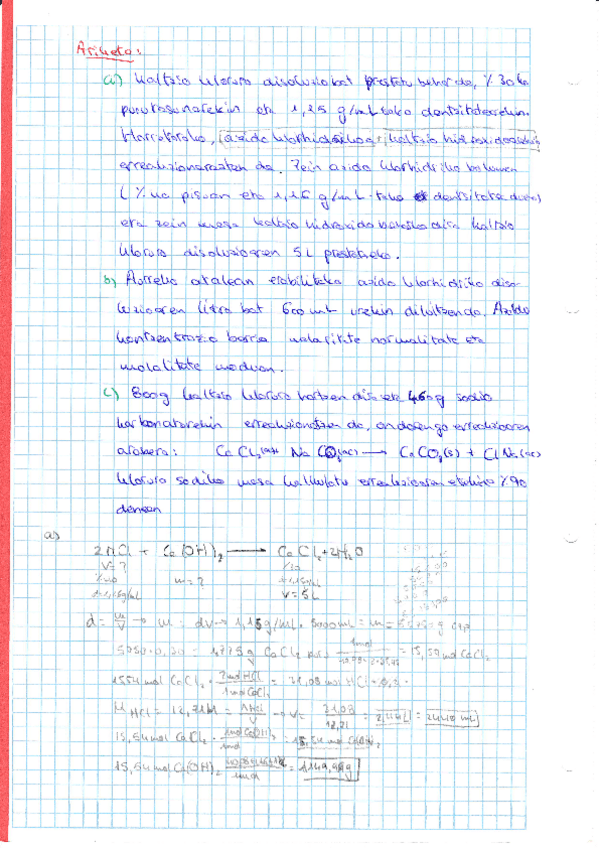 Ariketa:
a) Kaltzio kloruro disoluzio bat prestatu behar da, % 30eko
purutasunarekin eta 1,15 g/mL-tako dentsitatearekin.
Horretarako, azido klorhidrikoa kaltzio hidroxidoarekin
erreakzionarazten da. Zein azido klorhidriko bolumen
( %40 pisuan eta 1,15 g/mL-tako dentsitatea duena)
eta zein masa kaltzio hidroxido beharko dira kaltzio
kloruro disoluzioaren 5L prestatzeko.
b) Aurreko atalean erabilitako azido klorhidriko diso-
luzioaren litro bat 600 mL urekin diluitzen da. Azido
kontzentrazio berria molaritate normalitate eta
molalitate moduan.
c) 800g kaltzio kloruro hartzen dira eta 460g sodio
karbonatorekin erreakzionatzen da, ondorengo erreakzioaren
arabera: CaCl₂(aq) + Na CO₃(ac) → CaCO₃(s) + ClNa(ac)
kloruro sodiko masa kalkulatu erreakzioaren etekina %90
denean
a)
2HCl + Ca(OH)₂ → CaCl₂ + 2H₂O
V=? m=? %30
%40 d=1,15g/mL
d=1,15g/mL V=5L
d = m/V → m = dV → 1,15g/mL · 5000mL = m = 5750 g
5750 · 0,30 = 1725g CaCl₂ = 15,54 mol CaCl₂
15,54 mol CaCl₂ · 2mol HCl / 1mol CaCl₂ = 31,08 mol HCl
M HCl = 12,71M = n HCl / V → V = 31,08 / 12,71 =
15,54 mol CaCl₂ · 1mol Ca(OH)₂ / 1mol = 15,54 mol Ca(OH)₂
15,54 mol Ca(OH)₂ · / 1mol = 1149,96g